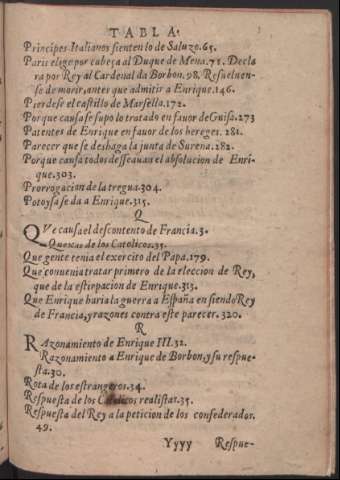 TABLA.
Principes Italianos sienten lo de Saluzo.65.
Paris elige por cabeça al Duque de Mena.71. Decla
ra por Rey al Cardenal da Borbon.98. Resueluen-
se de morir, antes que admitir a Enrique.146.
Pierdese el castillo de Marsella.172.
Porque causa se supo lo tratado en fauor de Guisa.273
Patentes de Enrique en fauor de los hereges. 281.
Parecer que se deshaga la junta de Surena.282.
Porque causa todos desseauan el absolucion de Enri-
que.303.
Prorrogacion de la tregua.304.
Potoysa se da a Enrique.315.
Q
QVe causa el descontento de Francia.3.
Quexas de los Catolicos.35.
Que gente tenia el exercito del Papa.179.
Que conuenia tratar primero de la eleccion de Rey,
que de la estirpacion de Enrique.313.
Que Enrique haria la guerra a España en siendo Rey
de Francia, y razones contra este parecer. 320.
R
RAzonamiento de Enrique III.32.
Razonamiento a Enrique de Borbon, y su respue-
sta.30.
Rota de los estrangeros.34.
Respuesta de los Catolicos realistas.35.
Respuesta del Rey a la peticion de los confederados.
49.
Yyyy Respue-